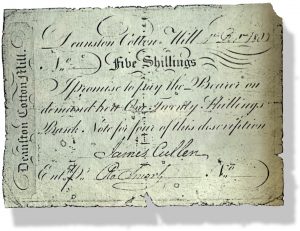 Deanston Cotton Mill.
Deanston Cotton Mill
No.
Five Shillings
I promise to pay the Bearer on
demand here One Twenty Shillings
Bank Note for four of this description
James Cullen
Entd.
No.